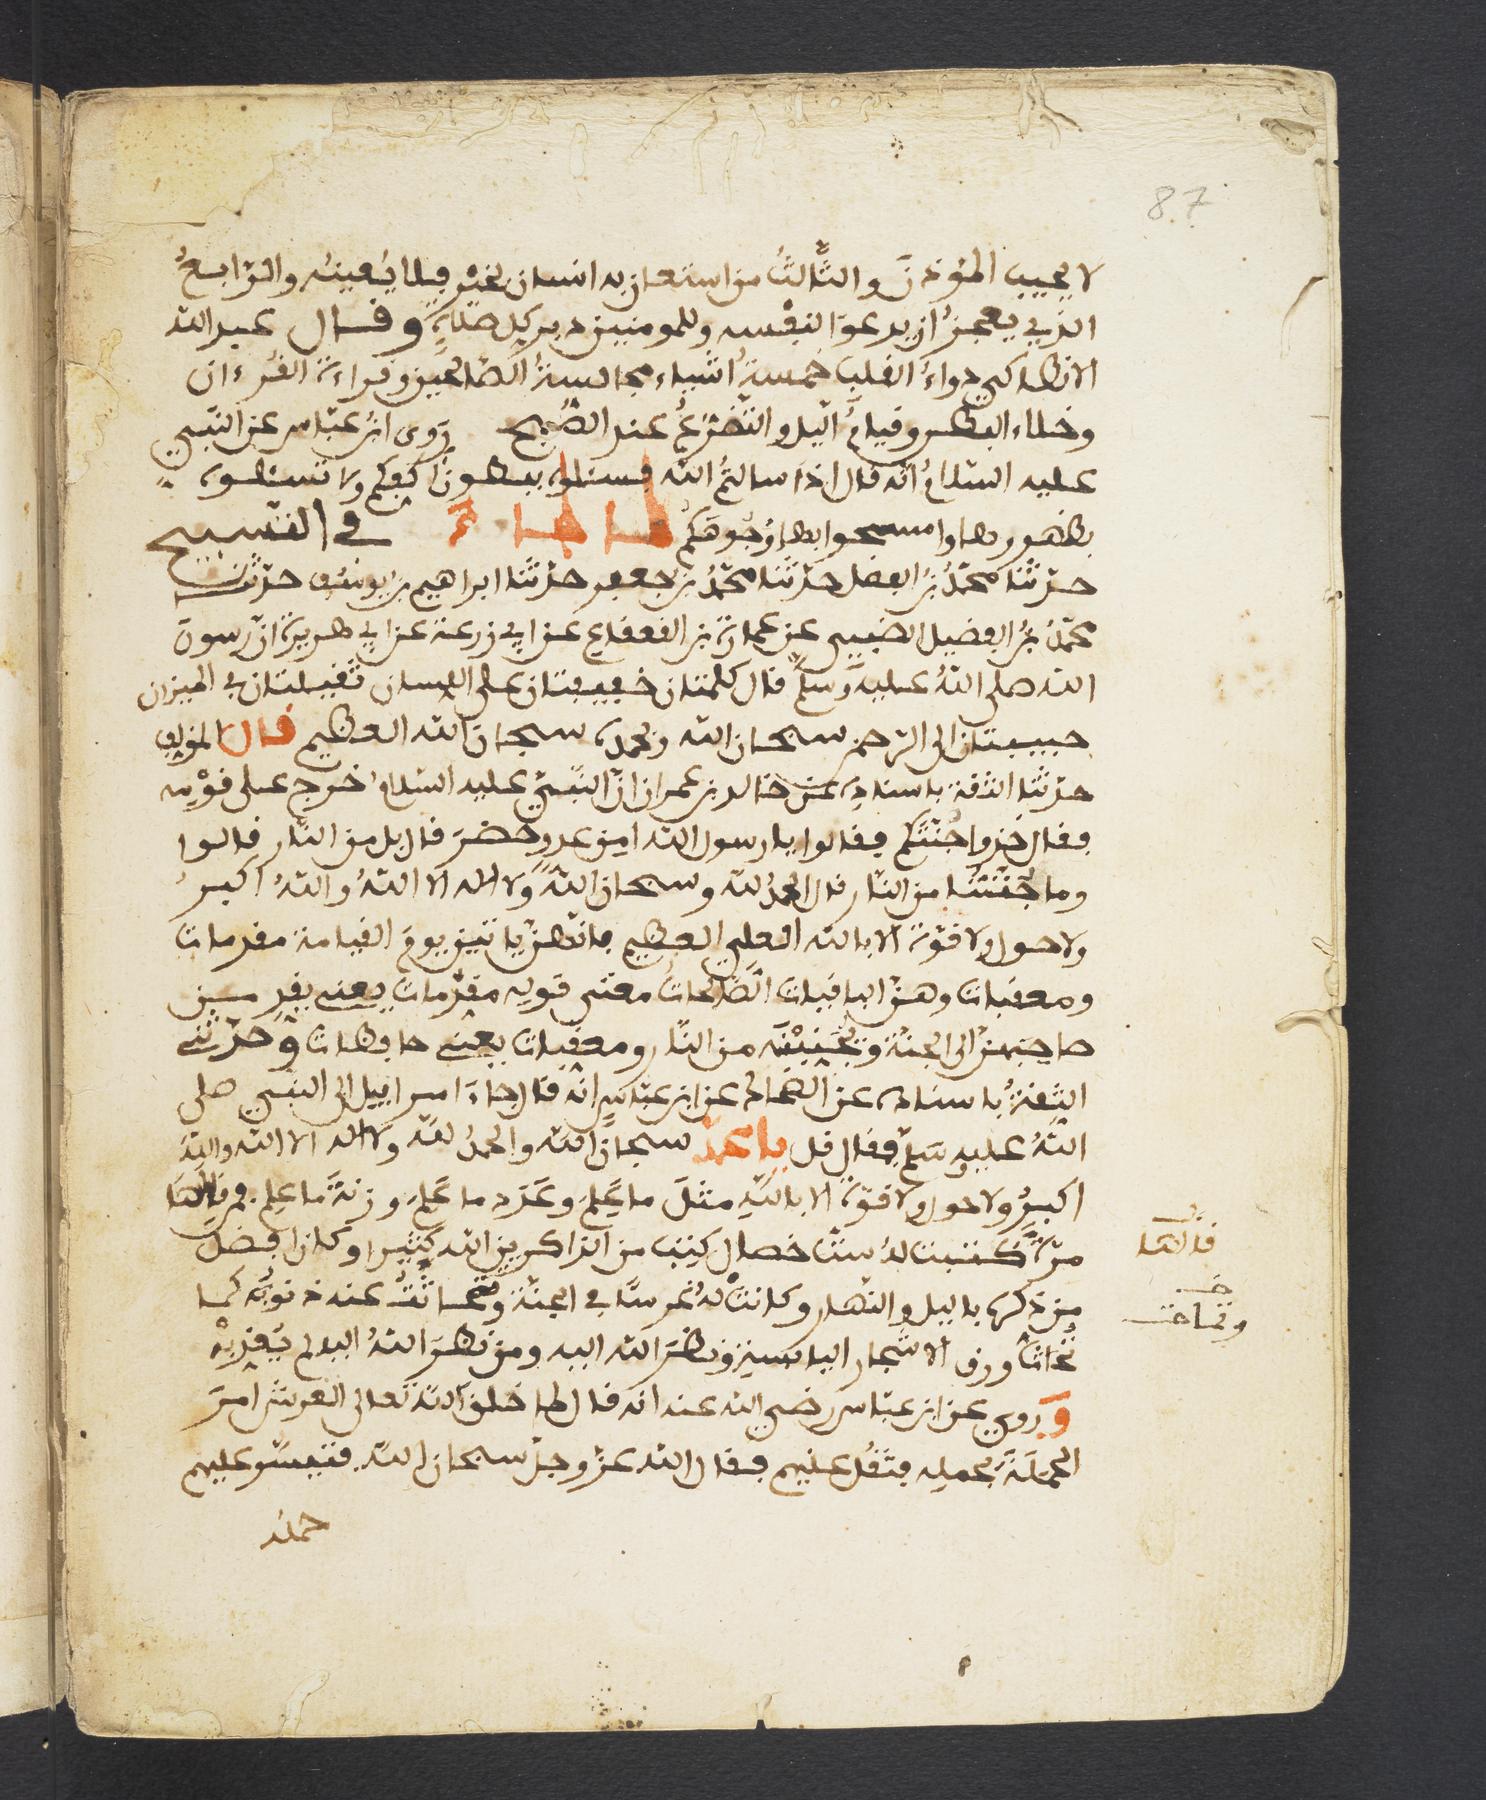 87
لا يجيب المؤذن والثالث من استعان به انسان بخير فلا يعينه والرابع
الذي يعجز ان يدعو لنفسه وللمومنين دبر كل صلاة وقال عبد الله
الانطاكي دواء القلب خمسة اشياء مجالسة الصالحين وقراءة القرءان
وخلاء البطن وقيام اليل والتضرع عند الصبح روى ابن عباس عن النبي
عليه السلام انه قال اذا سالتم الله فسئلوه ببطون اكفكم ولا تسئلوه
بظهورها وامسحوا بها وجوهكم في التسبيح
حدثنا محمد بن الفضل حدثنا محمد بن جعفر حدثنا ابراهيم بن يوسف حدثنا
محمد بن الفضيل الضبيي عن عمارة بن القعقاع عن ابي زرعة عن ابي هريرة ان رسول
الله صلى الله عليه وسلم قال كلمتان خفيفتان على اللسان ثقيلتان في الميزان
حبيبتان الى الرحمن سبحان الله وبحمده سبحان الله العظيم قال المؤلف
حدثنا الثقة باسناده عن خالد بن عمران ان النبي عليه السلام خرج على قومه
فقال خذوا جنتكم فقالوا يا رسول الله امن عدو حضر قال بل من النار قالوا
وما جنتنا من النار قال الحمد لله وسبحان الله ولا اله الا الله والله اكبر
ولا حول ولا قوة الا بالله العلي العظيم فانهن ياتين يوم القيامة مقدمات
ومعقبات وهن الباقيات الصالحات معنى قوله مقدمات يعني يقدمن
صاحبهن الى الجنة وتجنبنه من النار ومعقبات يعني حافظات وحدثني
الثقة باسناده عن الضحاك عن ابن عباس انه قال جاء اسرافيل الى النبي صلى
الله عليه وسلم فقال قل يا محمد سبحان الله والحمد لله ولا اله الا الله والله
اكبر ولا حول ولا قوة الا بالله مثل ما علم وعدد ما علم وزنة ما علم فمن قالها
مرة كتبت له ست خصال كتب من الذاكرين الله كثيرا وكان افضل
من ذكره باليل والنهار وكانت له غرسا في الجنة وتحاتت عنه ذنوبه كما
تحات ورق الاشجار اليابسة ونظر الله اليه ومن نظر الله اليه لم يعذبه
وروي عن ابن عباس رضي الله عنه انه قال لما خلق الله تعالى العرش امر
الحملة بحمله فثقل عليهم فقال الله عز وجل سبحان الله فتيسر عليهم
حمله
قالها
وتحات